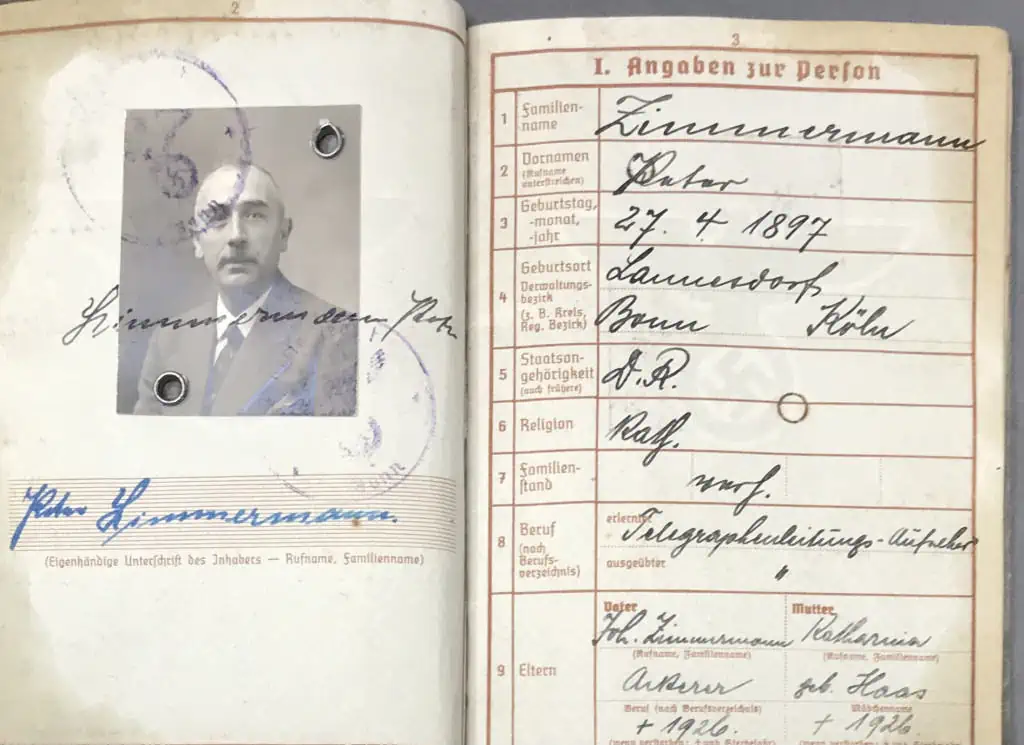 2
Bonn
Zimmermann Peter
Bonn
Peter Zimmermann.
(Eigenhändige Unterschrift des Inhabers — Rufname, Familienname)
3
I. Angaben zur Person
1 Familien-
name
Zimmermann
2 Vornamen
(Rufname
unterstreichen)
Peter
3 Geburtstag,
-monat,
-jahr
27. 4. 1897
4 Geburtsort
Verwaltungs-
bezirk
(z. B. Kreis,
Reg. Bezirk)
Lannesdorf
Bonn Köln
5 Staatsan-
gehörigkeit
(auch frühere)
D.R.
6 Religion
Kath.
7 Familien-
stand
verh.
8 Beruf
(nach
Berufs-
verzeichnis)
erlernter
Telegraphenleitungs-Aufseher
ausgeübter
"
9 Eltern
Vater Mutter
Joh. Zimmermann Katharina
(Rufname, Familienname) (Rufname, Familienname)
Ackerer geb. Haas
Beruf (nach Berufsverzeichnis) Mädchenname
+ 1926. + 1926.
(wenn verstorben: + und Sterbejahr) (wenn verstorben: + und Sterbejahr)